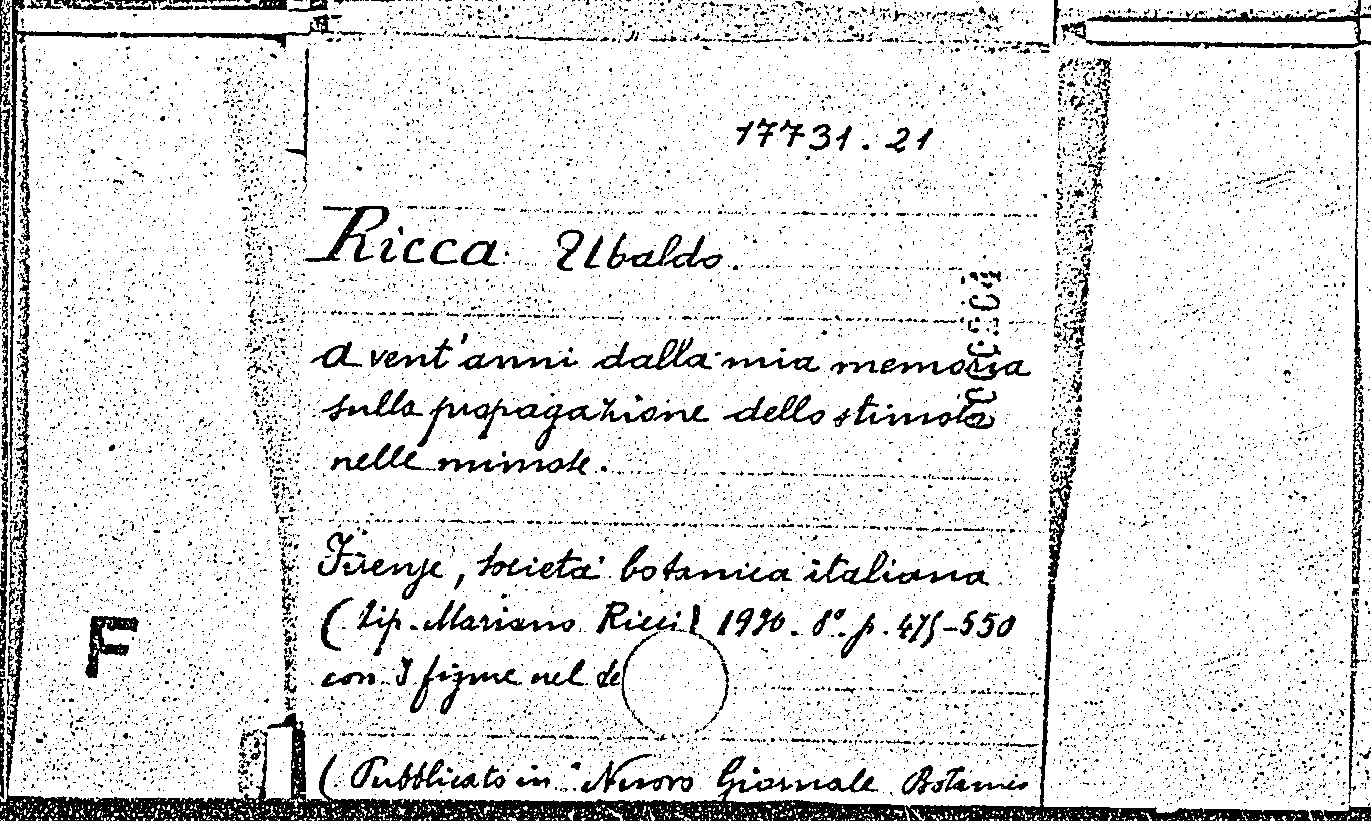 17731.21
Ricca Ubaldo.
A vent'anni dalla mia memoria
sulla propagazione dello stimolo
nelle mimose.
Firenze, Società botanica italiana
(Tip. Mariano Ricci) 1920. 8°. p. 475-550
con 3 figure nel
F
(Pubblicato in "Nuovo Giornale Botanico